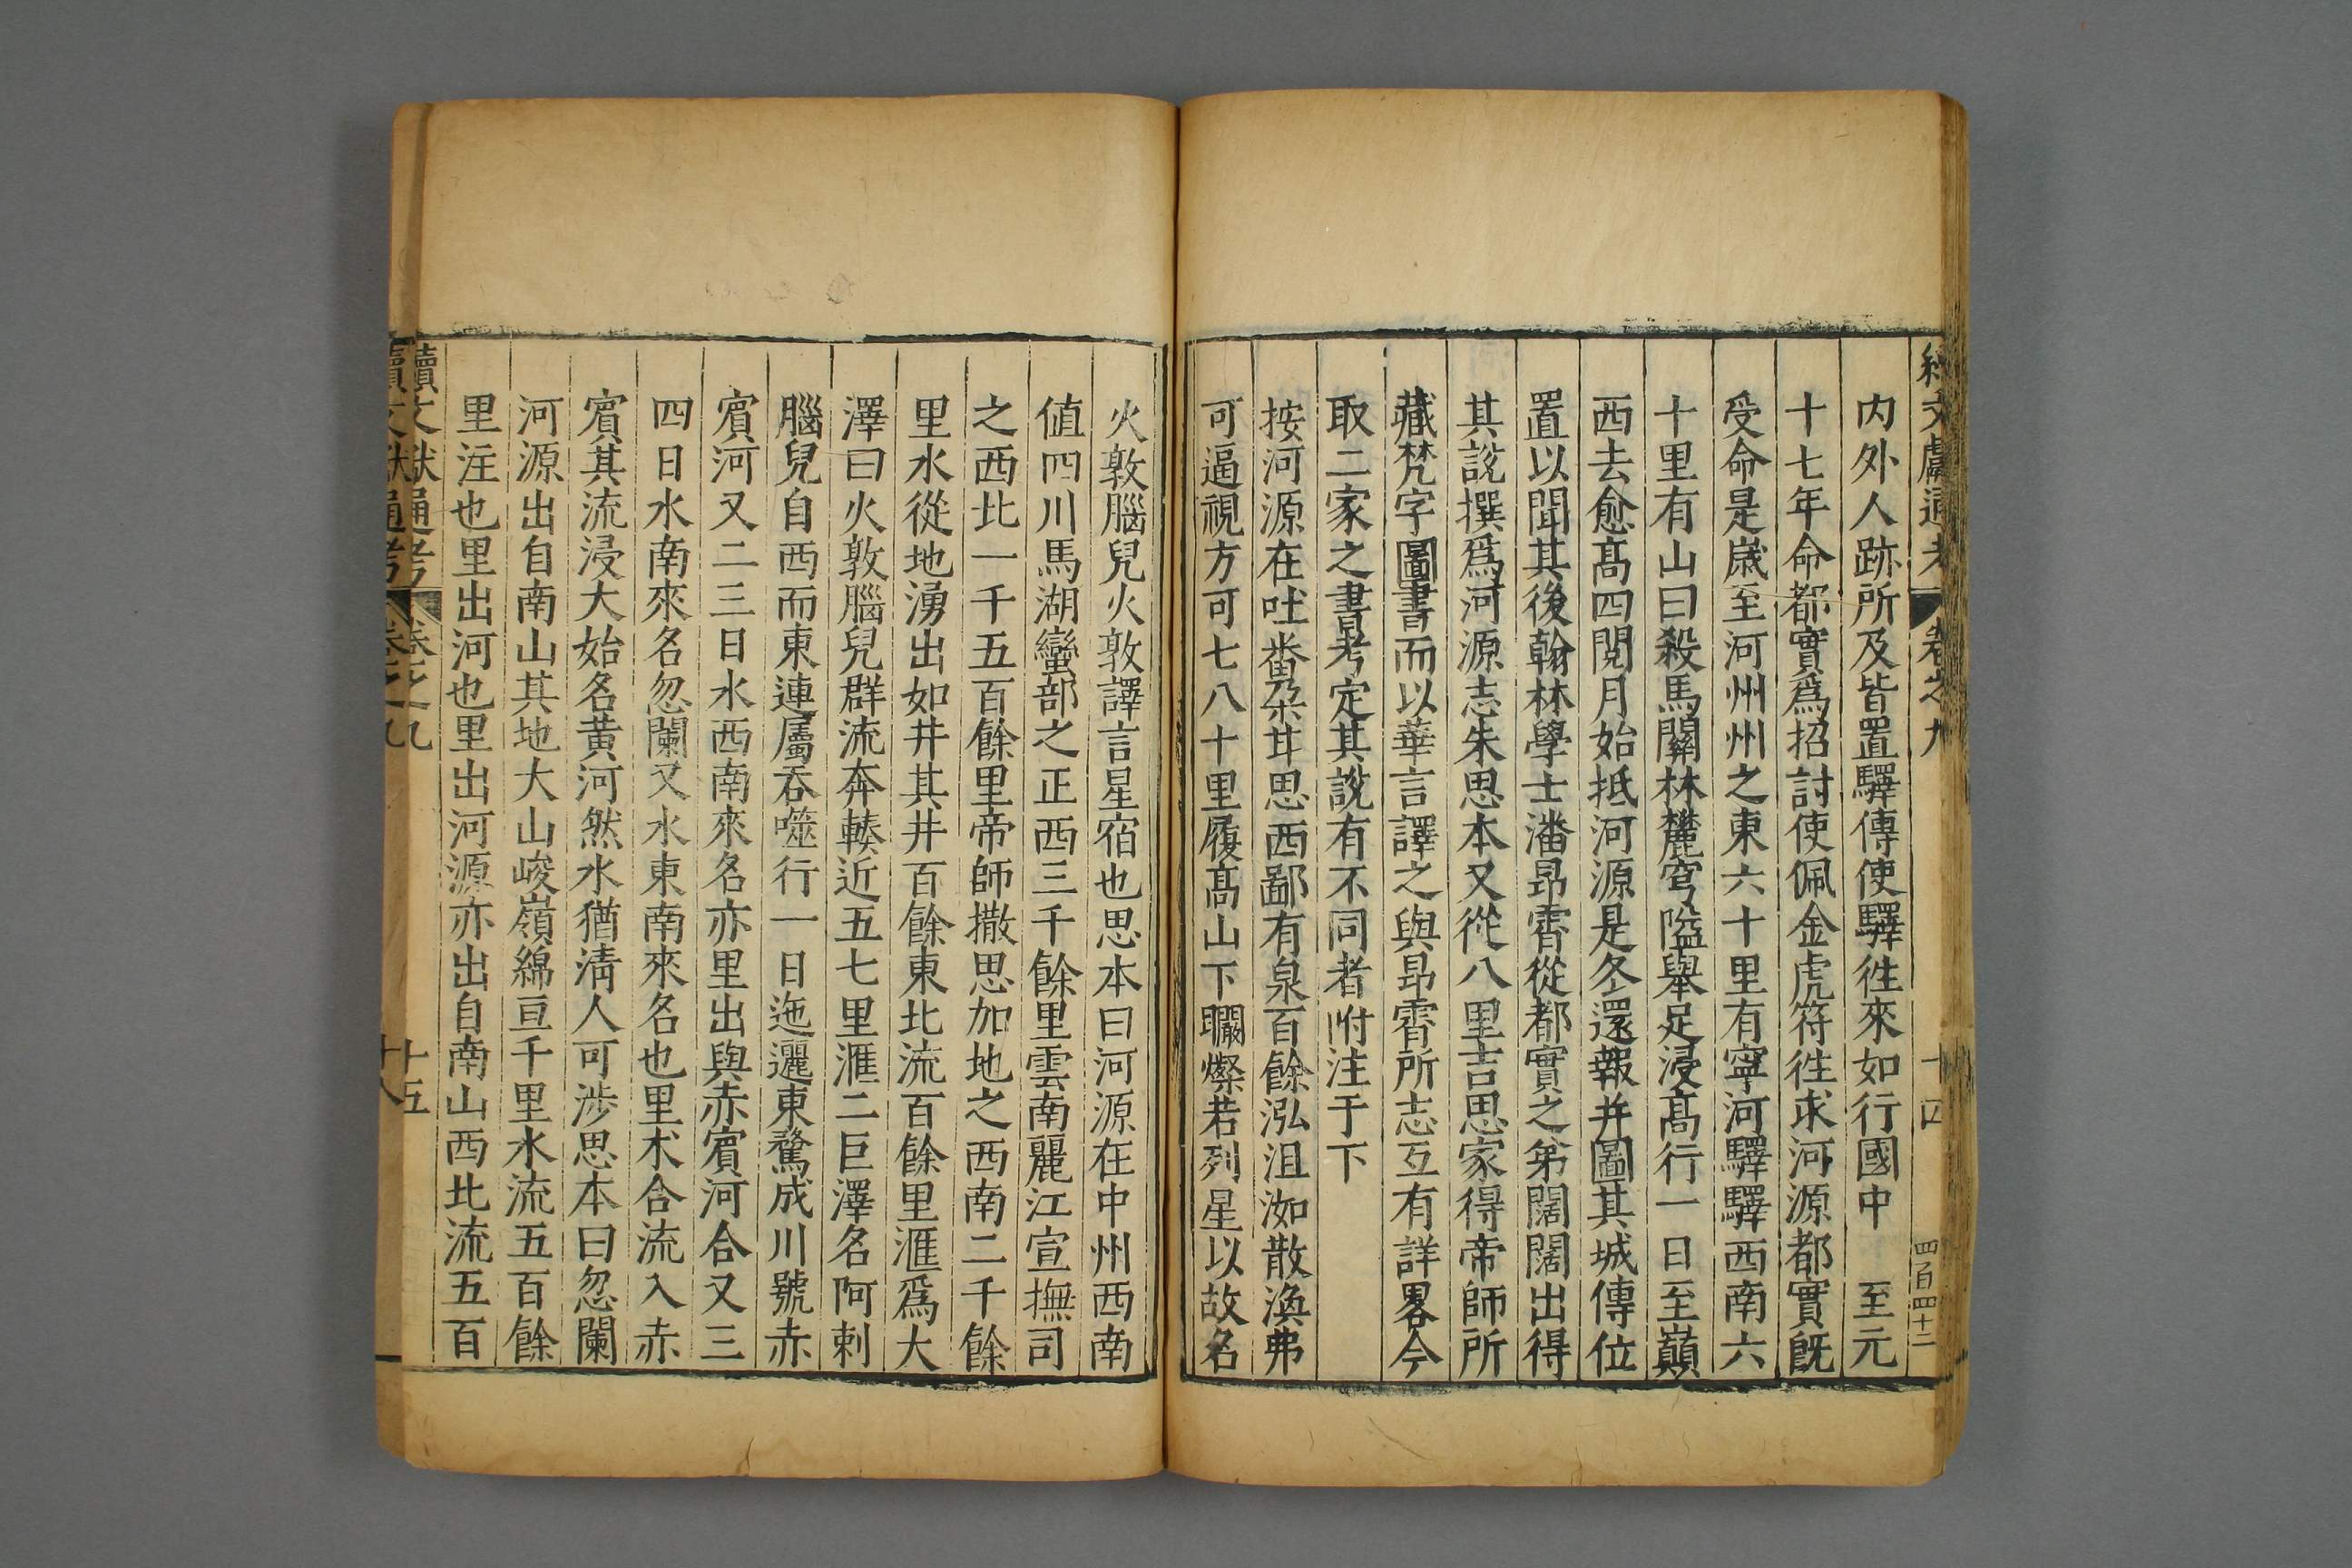 續文獻通考 卷之九 十四 四百四十二
内外人跡所及皆置驛傳使驛徃來如行國中 至元
十七年命都實爲招討使佩金虎符徃求河源都實旣
受命是歲至河州州之東六十里有寧河驛驛西南六
十里有山曰殺馬關林麓窮隘舉足浸髙行一日至巔
西去愈髙四閱月始抵河源是冬還報并圖其城傳位
置以聞其後翰林學士潘昂霄從都實之弟闊闊出得
其說撰爲河源志朱思本又從八里吉思家得帝師所
藏梵字圖書而以華言譯之與昂霄所志互有詳畧今
取二家之書考定其說有不同者附注于下
按河源在吐蕃朶甘思西鄙有泉百餘泓沮洳散渙弗
可逼視方可七八十里履髙山下瞰燦若列星以故名
火敦腦兒火敦譯言星宿也思本曰河源在中州西南
值四川馬湖蠻部之正西三千餘里雲南麗江宣撫司
之西北一千五百餘里帝師撒思加地之西南二千餘
里水從地湧出如井其井百餘東北流百餘里滙爲大
澤曰火敦腦兒群流奔輳近五七里滙二巨澤名阿剌
腦兒自西而東連屬吞噬行一日迤邐東騖成川號赤
賓河又二三日水西南來名亦里出與赤賓河合又三
四日水南來名忽闌又水東南來名也里术合流入赤
賓其流浸大始名黄河然水猶清人可涉思本曰忽闌
河源出自南山其地大山峻嶺綿亘千里水流五百餘
里注也里出河也里出河源亦出自南山西北流五百
續文獻通考 卷之九 十五